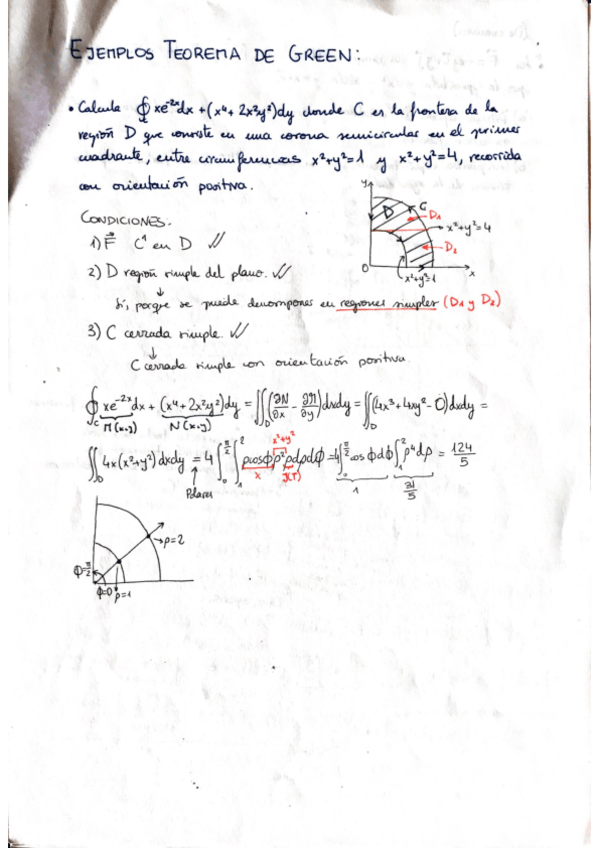 EJEMPLOS TEOREMA DE GREEN:
• Calcula ∮_C xe^{-2x}dx + (x⁴ + 2x²y²)dy donde C es la frontera de la
región D que consiste en una corona semicircular en el primer
cuadrante, entre circunferencias x²+y²=1 y x²+y²=4, recorrida
con orientación positiva.
y
D
C
D₁
x²+y²=4
D₂
0
x²+y²=1
x
CONDICIONES.
1) F⃗ C¹ en D ✓✓
2) D región simple del plano. ✓✓
↓
Sí, porque se puede descomponer en regiones simples (D₁ y D₂)
3) C cerrada simple. ✓✓
↓
C cerrada simple con orientación positiva.
∮_C xe^{-2x}dx + (x⁴+2x²y²)dy = ∬_D (∂N/∂x - ∂M/∂y)dxdy = ∬_D (4x³+4xy²-0)dxdy =
M(x,y) N(x,y)
x²+y²
∬_D 4x(x²+y²)dxdy = 4∫_0^{π/2} ∫_1^2 ρcosϕ ρ² ρdρdϕ = 4∫_0^{π/2} cosϕdϕ ∫_1^2 ρ⁴dρ = 124/5
Polares x J(T) 1 31/5
ρ=2
ϕ=π/2
ϕ=0 ρ=1